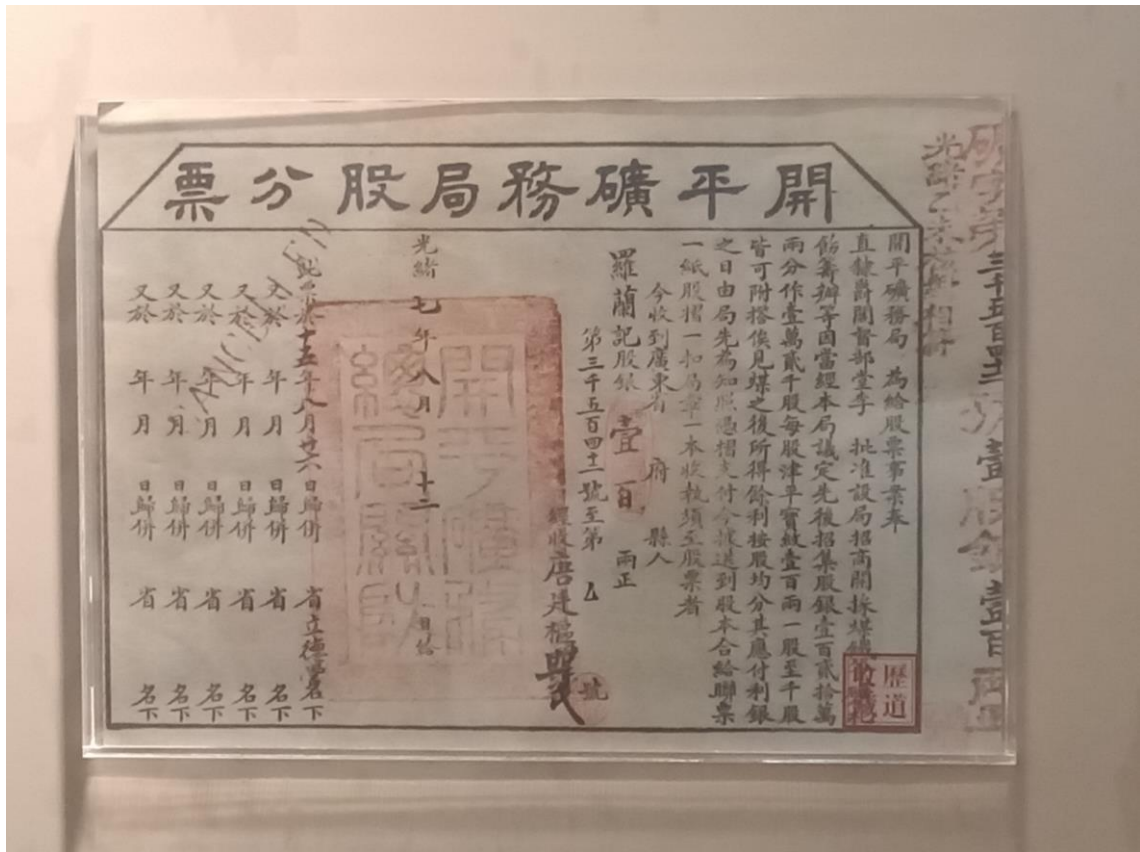 開平礦務局股分票
開平礦務局 為給股票事案奉
直隸爵閣督部堂李 批准設局招商開採煤鐵
飭籌辦等因當經本局議定先後招集股銀壹百貳拾萬
兩分作壹萬貳千股每股津平寶紋壹百兩一股至千股
皆可附搭俟見煤之後所得餘利按股均分其應付利銀
之日由局先為知照憑摺支付今據送到股本合給聯票
一紙股摺一扣局章一本收執須至股票者
今收到廣東省 府 縣人
羅蘭記股銀 壹百 兩正
第三千五百四十二號至第 號
經收唐廷樞
光緒七年八月十二日給
開平礦務總局關防
CANCELLED
此票於十五年八月廿六日歸併 省立德堂名下
又於 年 月 日歸併 省 名下
又於 年 月 日歸併 省 名下
又於 年 月 日歸併 省 名下
又於 年 月 日歸併 省 名下
又於 年 月 日歸併 省 名下
歷道
收藏
壹百兩